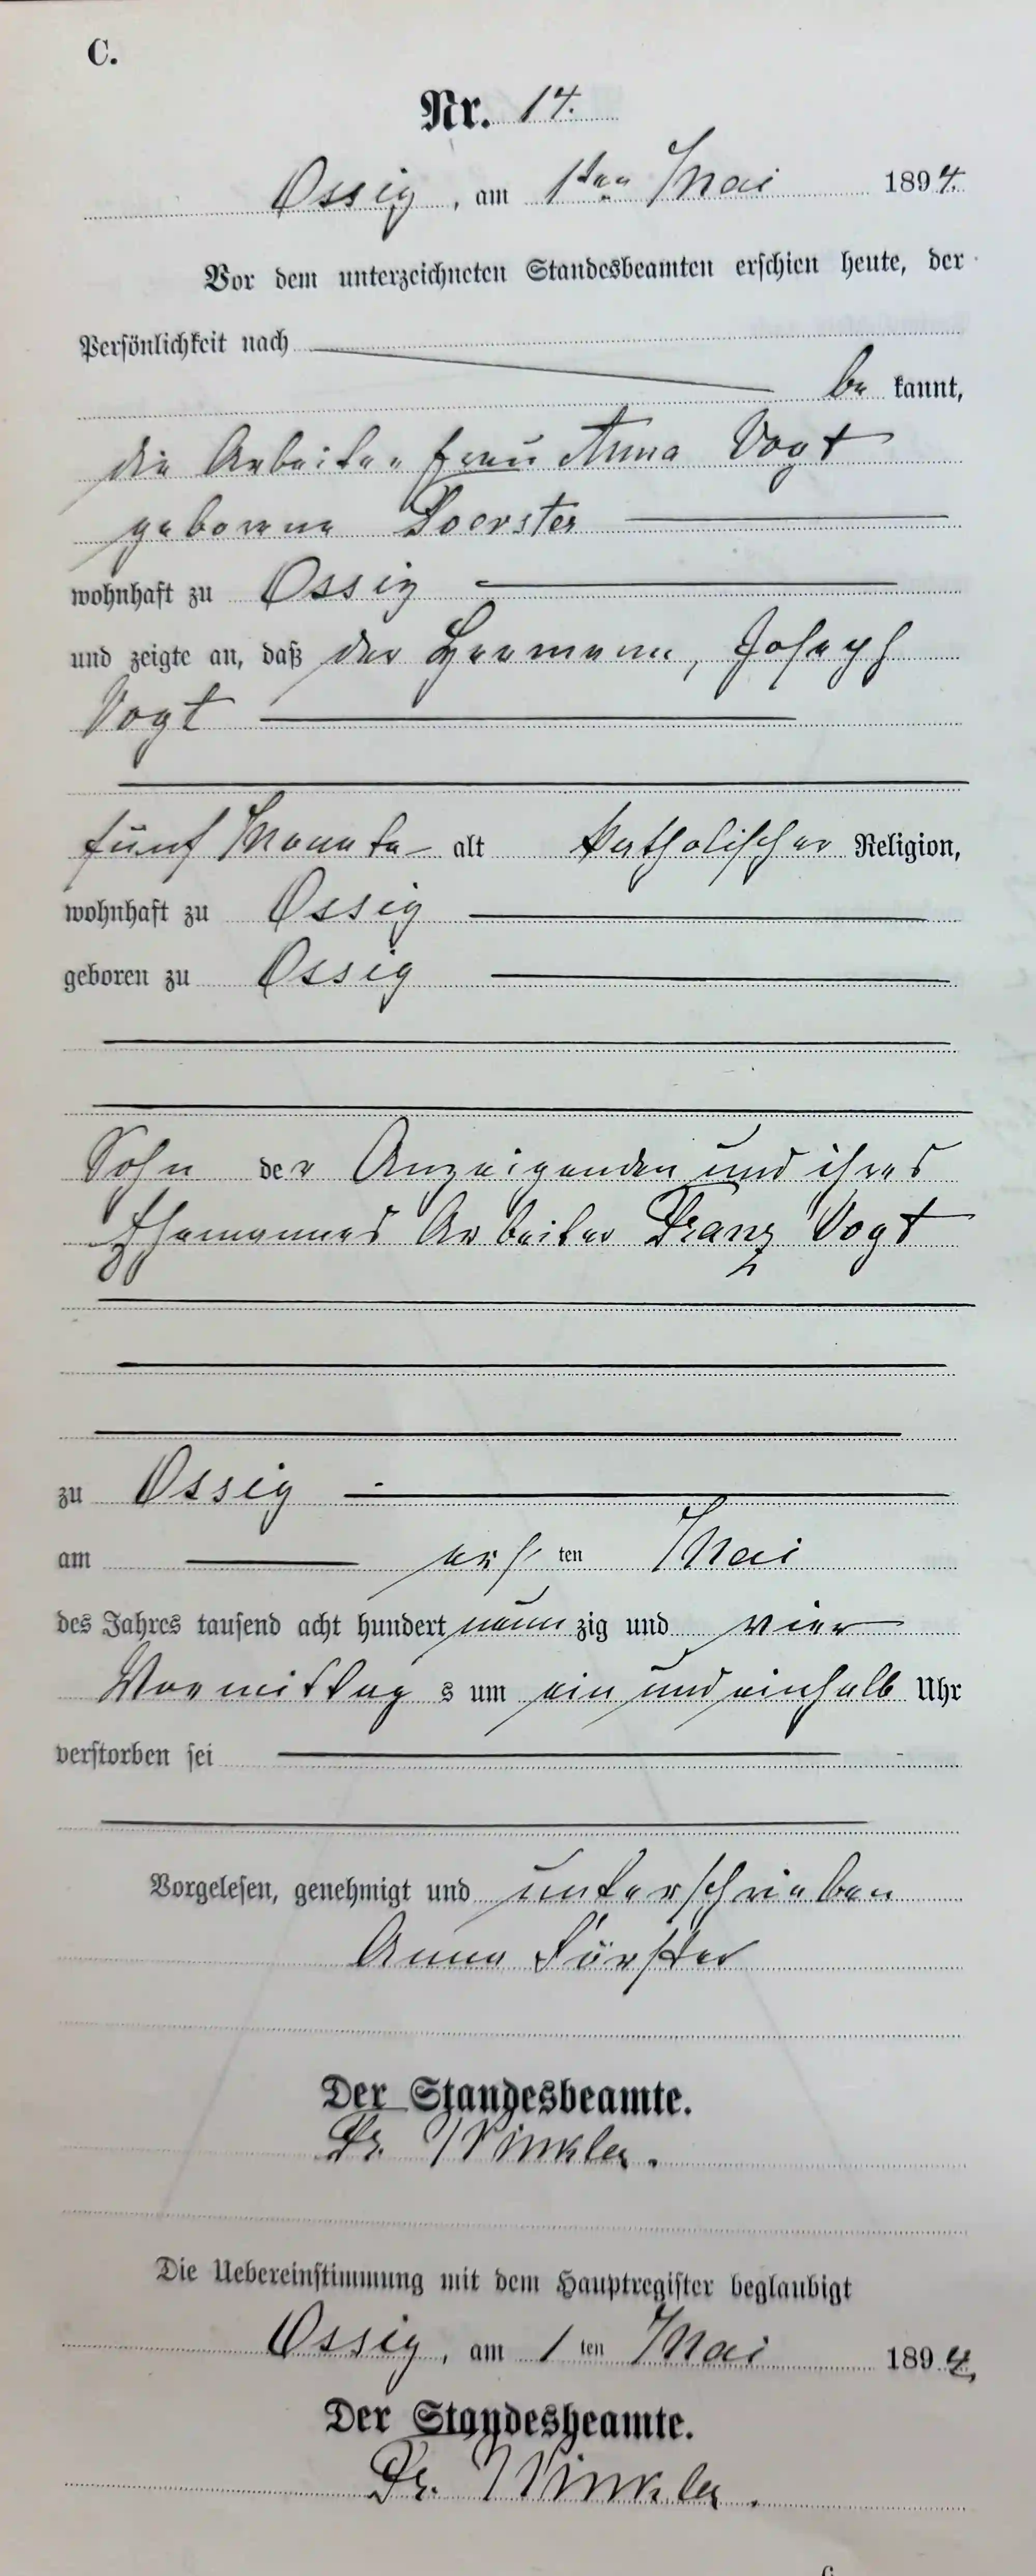 C.
Nr. 14.
Ossig, am 1ten Mai 1894.
Vor dem unterzeichneten Standesbeamten erschien heute, der
Persönlichkeit nach
be kannt,
die Arbeiter frau Anna Vogt
geborene Foerster
wohnhaft zu Ossig
und zeigte an, daß der Hermann, Joseph
Vogt
fünf Monate alt katholischer Religion,
wohnhaft zu Ossig
geboren zu Ossig
Sohn der Anzeigenden und ihres
Ehemannes Arbeiter Franz Vogt
zu Ossig
am ersten Mai
des Jahres tausend acht hundert neunzig und vier
Vormittags um ein und einhalb Uhr
verstorben sei
Vorgelesen, genehmigt und unterschrieben
Anna Förster
Der Standesbeamte.
Dr. Winkler.
Die Uebereinstimmung mit dem Hauptregister beglaubigt
Ossig, am 1ten Mai 1894.
Der Standesbeamte.
Dr. Winkler.